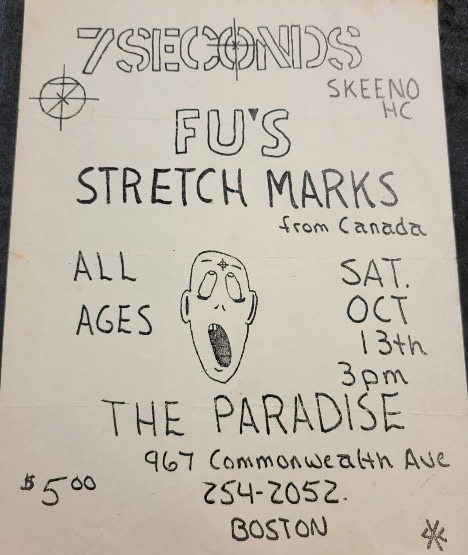 7SECONDS
SKEENO
HC
FU'S
STRETCH MARKS
from Canada
ALL
AGES
SAT.
OCT
13th
3pm
THE PARADISE
967 Commonwealth Ave
$5.00
254-2052.
BOSTON